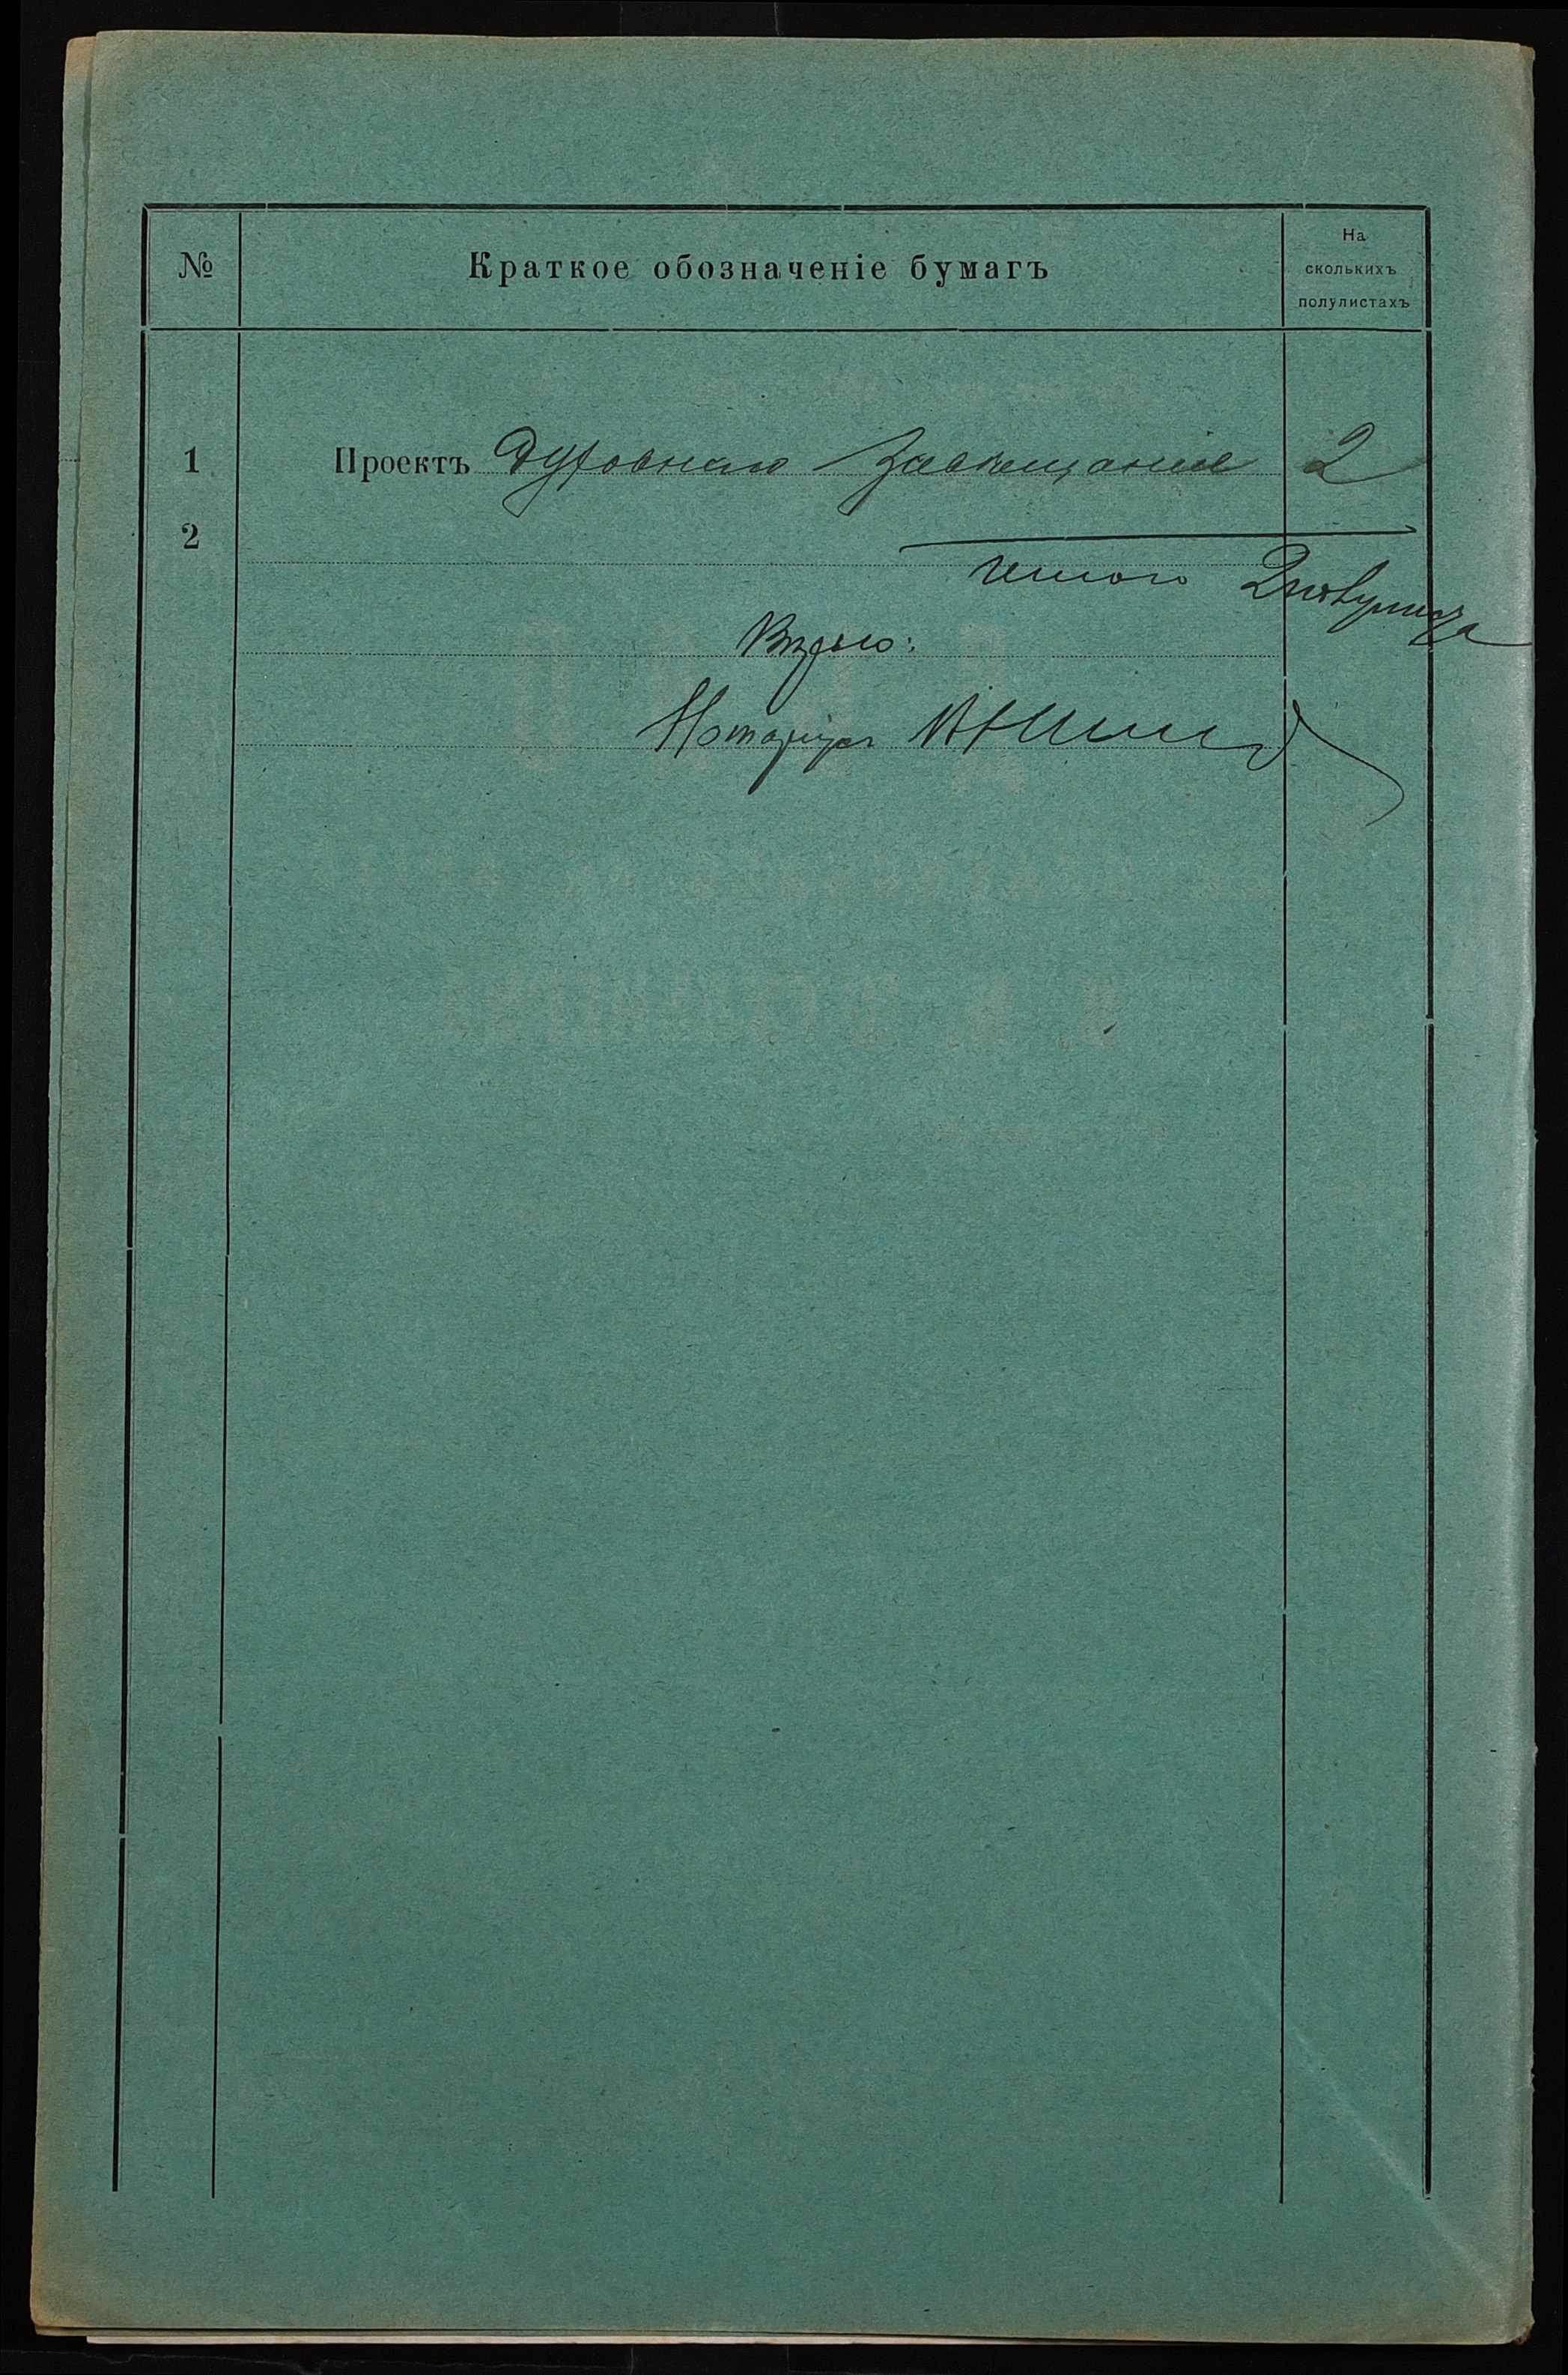 №
Краткое обозначеніе бумагъ
На
сколькихъ
полулистахъ
1
Проектъ духовнаго завѣщанія
2
2
Итого 2 полулиста
Вѣрно:
Нотаріусъ